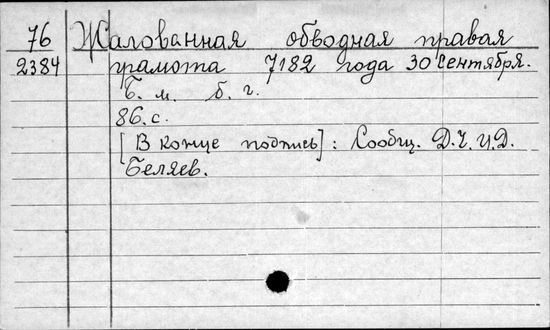 76 Жалованная обводная правая
2384 грамота 7182 года 30 Сентября.
Б. м. б. г.
86. с.
[В конце подпись]: Сообщ. Д. Ч. И. Д.
Беляев.